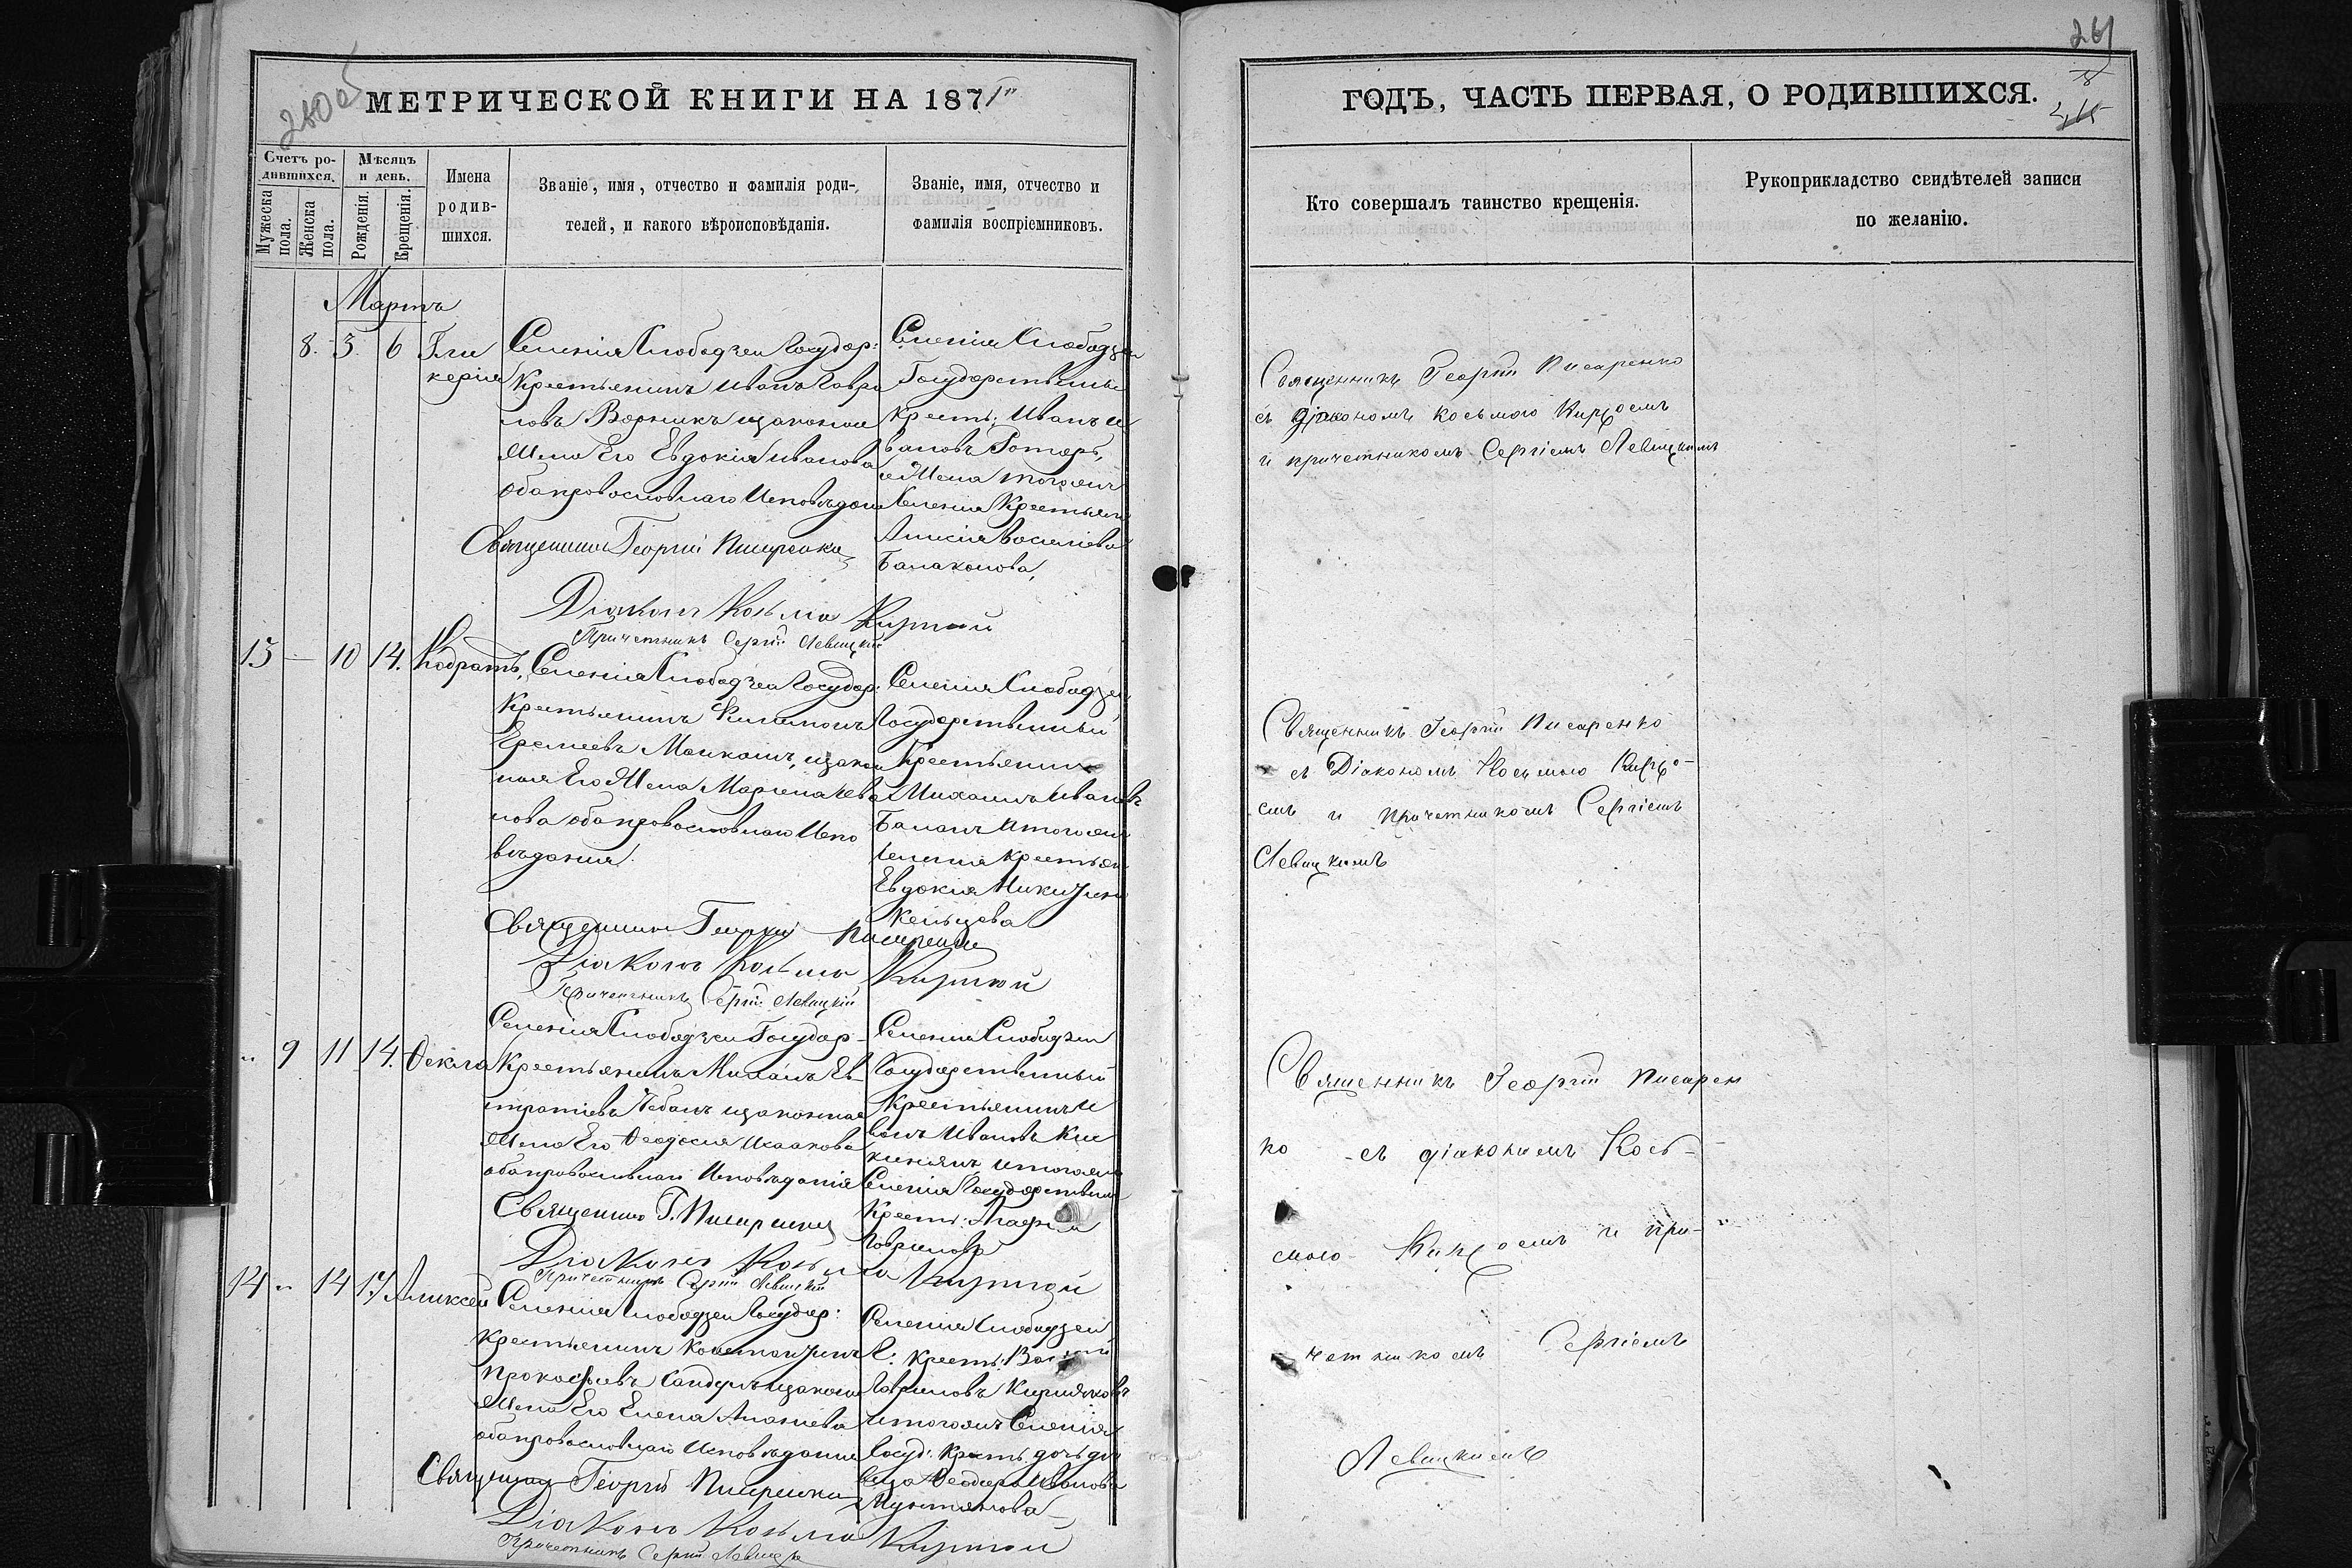 260 об
МЕТРИЧЕСКОЙ КНИГИ НА 1871
Счетъ ро-
дившихся.
Мѣсяцъ
и день.
Мужеска
пола.
Женска
пола.
Рожденія.
Крещенія.
Имена
родив-
шихся.
Званіе, имя, отчество и фамилія роди-
телей, и какого вѣроисповѣданія.
Званіе, имя, отчество и
фамилія воспріемниковъ.
Мартъ
8. 3. 6 Гли
керія
Селенія Слободзеи Государ:
Крестьянинъ Иванъ Гаври
ловъ Ворникъ изаконная
Жена Его Евдокія Иванова
оба православнаго Исповѣдан
Священникъ Георгій Писаренко
Діаконъ Козьма Киркой
Причетникъ Сергій Левицкій
Селенія Слободзеи
Государственны
Кресть: Иванъ И
вановъ Ротарь,
и Жена тогожъ
Селенія Крестьян
Василіева
Балаконова,
13 — 10 14. Кодратъ,
Селенія Слободзеи Государ:
Крестьянинъ Филимонъ
Еремеевъ изакон
ная Его Жена Марія
нова оба православнаго Испо
вѣданія.
Священникъ Георгій Писаренко
Діаконъ Козьма Киркой
Причетникъ Сергій Левицкій
Селенія Слободзеи
Государственный
Крестьянинъ
Михаилъ Ивановъ
Баланъ итогожъ
Селенія Крестьян
Евдокія Никитина
9 11 14. Ѳекла
Селенія Слободзеи Государ-
Крестьянинъ Михаилъ Ев-
стратіевъ Чебанъ изаконная
Жена Его Ѳеодосія Исаакова
оба православнаго Исповѣданія
Священникъ Г. Писаренко
Діаконъ Козьма Киркой
Причетникъ Сергій Левицкій
Селенія Слободзеи
Государственный
Крестьянинъ И
ванъ Ивановъ
итогожъ
Селенія Государствен
Кресть:
Гаврилова
14 " 14 17 Аликсей
Селенія Слободзеи Государ:
Крестьянинъ Константинъ
Прокофьевъ Сандулъ изаконная
Жена Его Елена Ананіева
оба православнаго Исповѣданія
Священникъ Георгій Писаренко
Діаконъ Козьма Киркой
Причетникъ Сергій Левицкій
Селенія Слободзеи
Г: Кресть:
Гавриловъ Кирияковъ
итогожъ Селенія
Госуд: Кресть дочь дѣ
вица Ѳеодора Иванова
Мунтянова
261
ГОДЪ, ЧАСТЬ ПЕРВАЯ, О РОДИВШИХСЯ.
Кто совершалъ таинство крещенія.
Рукоприкладство свидѣтелей записи
по желанію.
Священникъ Георгій Писаренко
съ діакономъ Косьмою Киркоемъ
и причетникомъ Сергіемъ Левицкимъ
Священникъ Георгій Писаренко
съ Діакономъ Косьмою Кирко-
емъ и причетникомъ Сергіемъ
Левицкимъ
Священникъ Георгій Писарен
ко - съ діакономъ Кось-
мою Киркоемъ и при-
четникомъ Сергіемъ
Левицкимъ